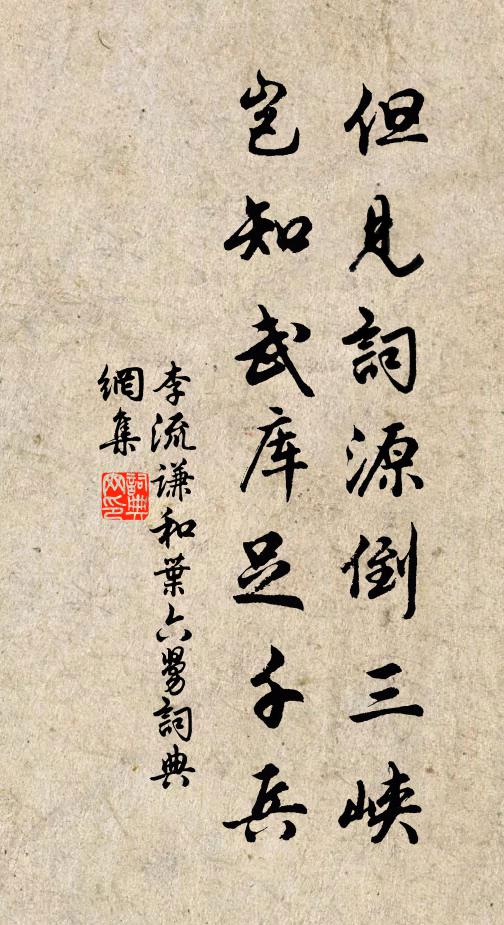 但見詞源倒三峽
豈知武库足千兵
李流谦和葉六舅詞典
網集
詞典網印